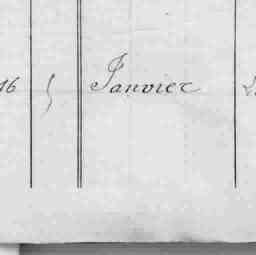 16 } Janvier